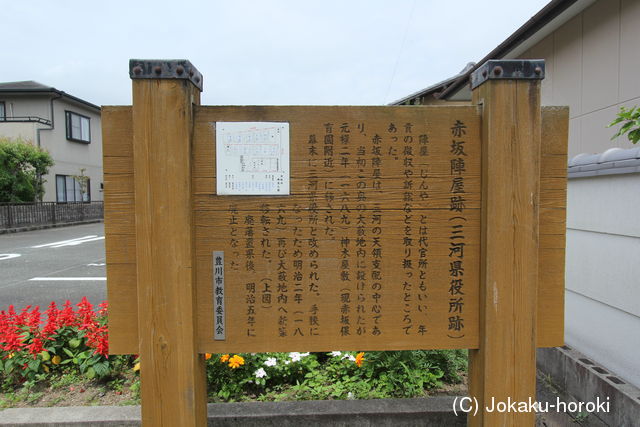 赤坂陣屋跡(三河県役所跡)
陣屋(じんや)とは代官所ともいい、年
貢の徴収や訴訟などを取り扱ったところで
あった。
赤坂陣屋は、三河の天領支配の中心であ
り、当初この奥の大藪地内に設けられたが
元禄二年(一六八九)神木屋敷(現赤坂保
育園附近)に移された。
幕末に三河県役所と改められた。手狭に
なったため明治二年(一八
六九)再び大藪地内へ新築
移転された。(上図)
廃藩置県後、明治五年に
廃止となった。
豊川市教育委員会
(C) Jokaku-horoki